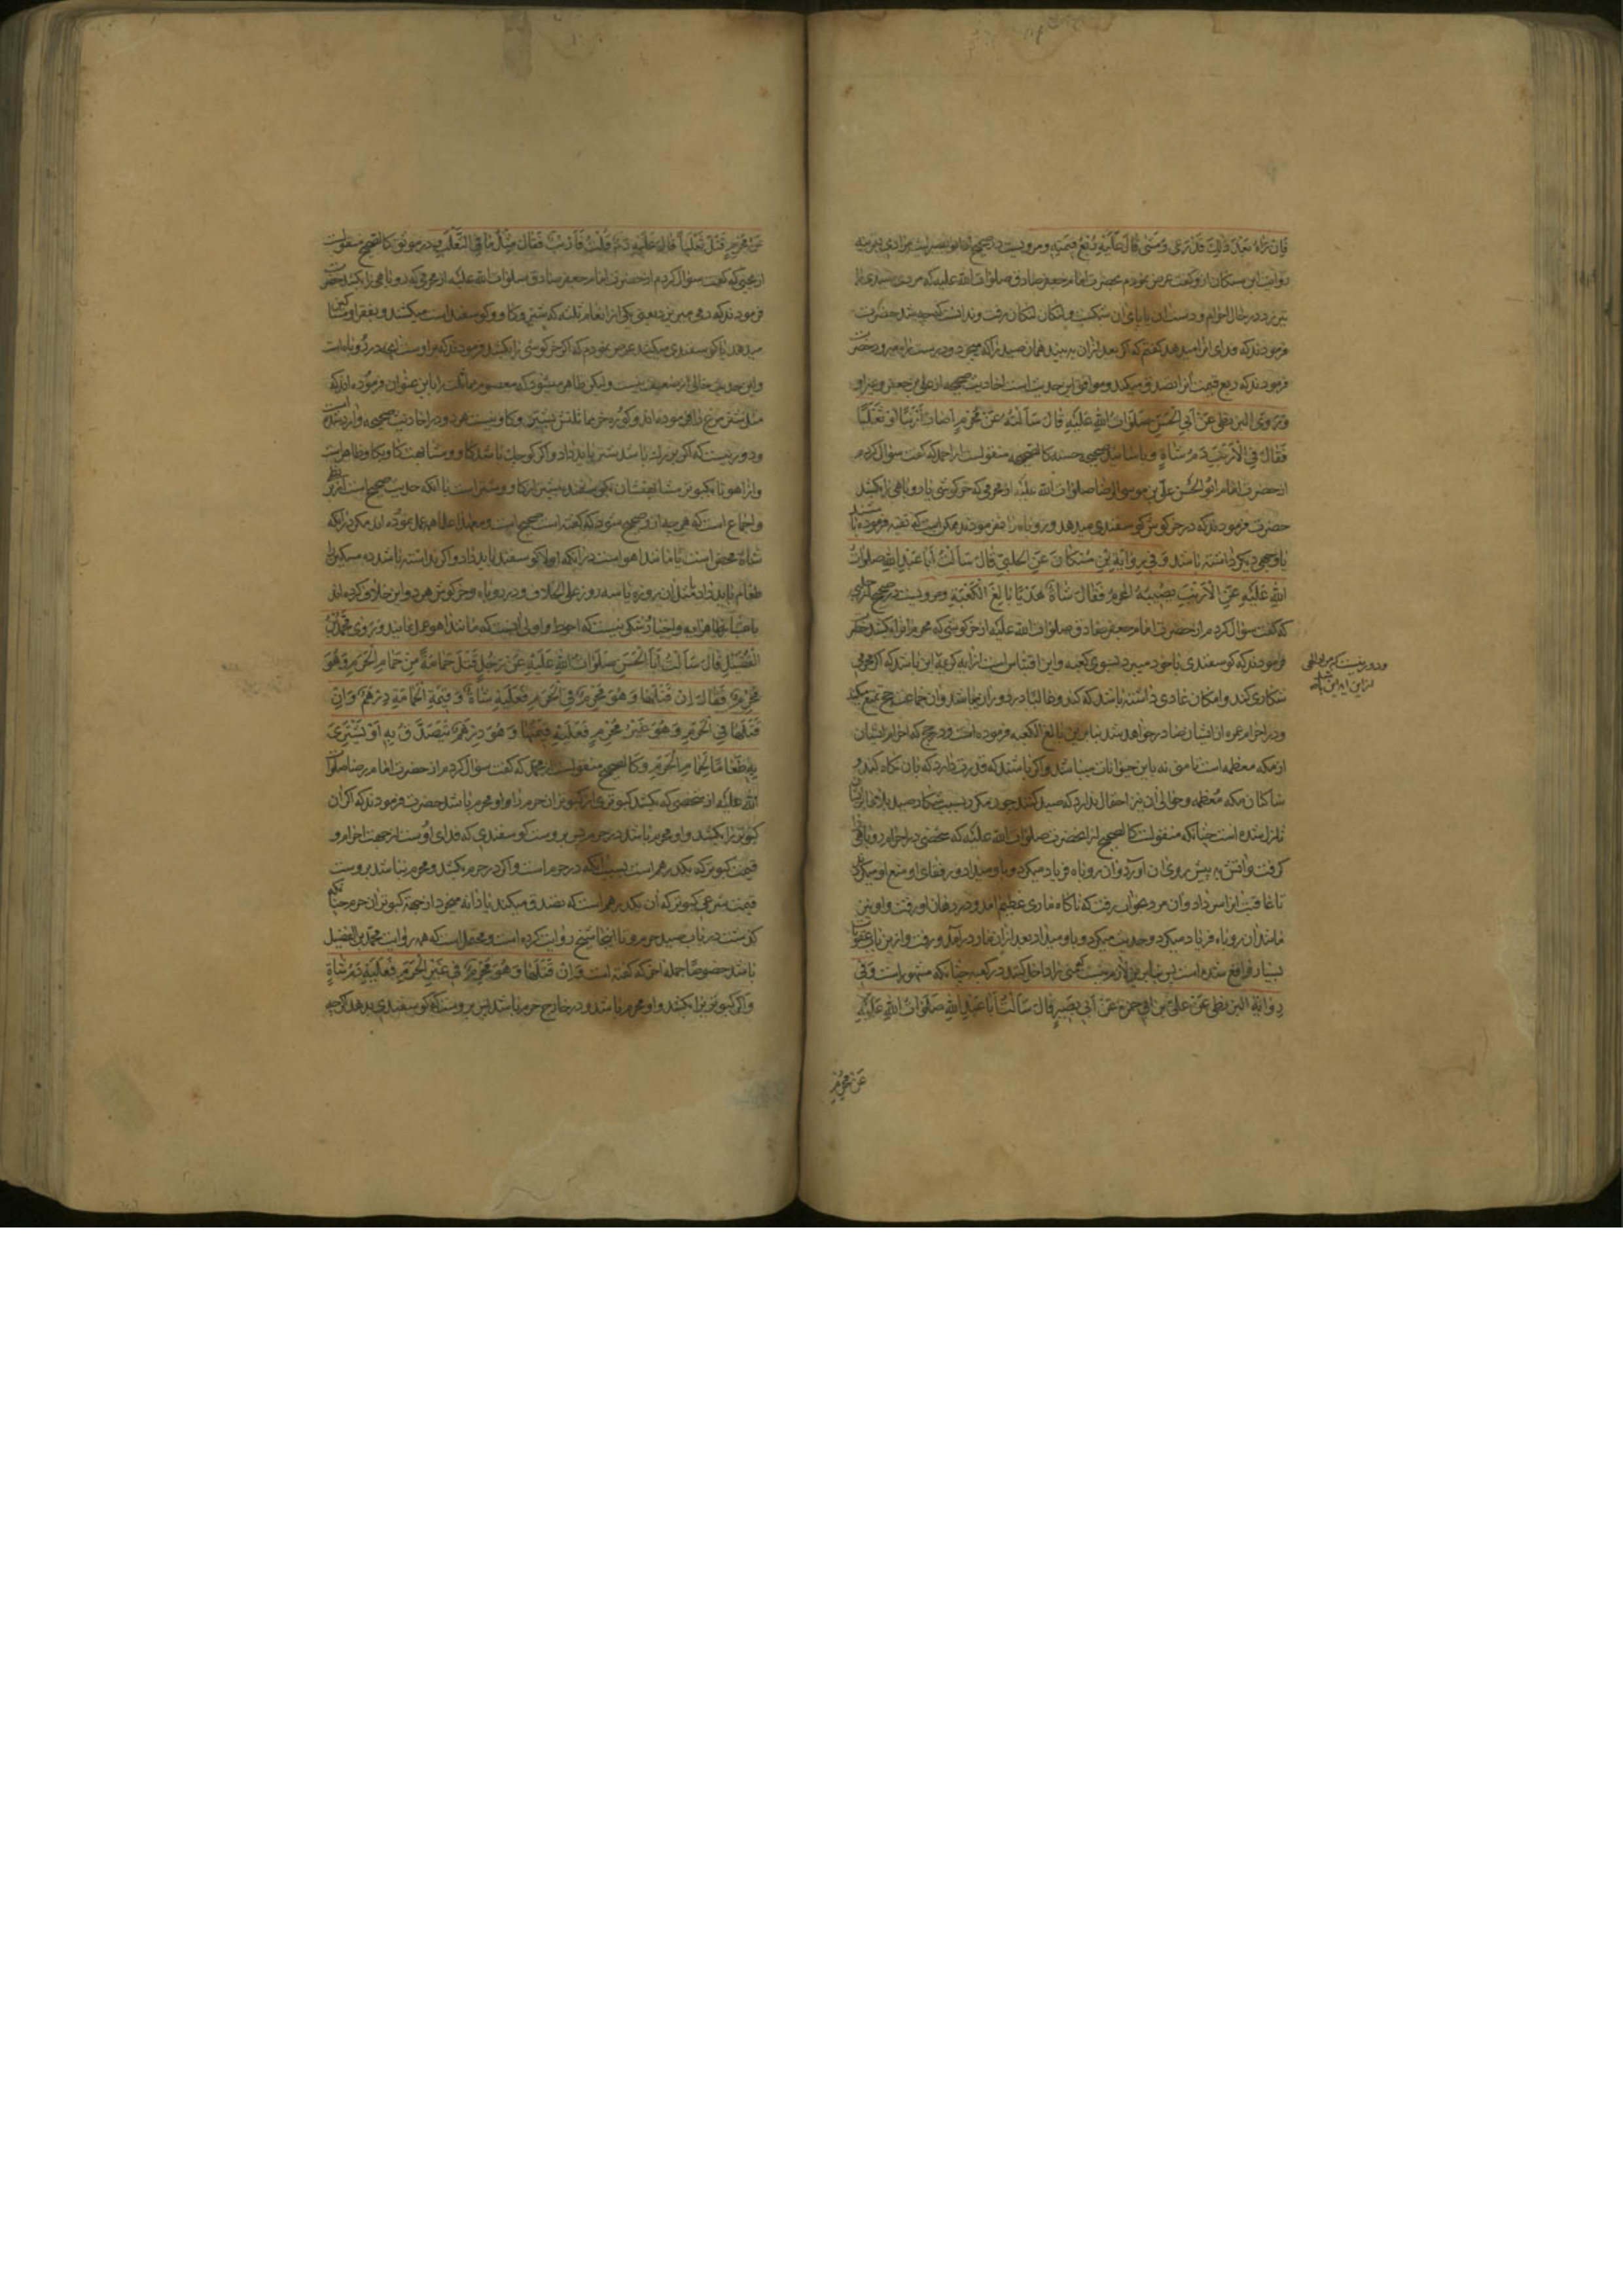 فَاِنْ رَاهُ بَعْدَ ذٰلِكَ قَدْ رَعٰى وَ مَشٰى قَالَ عَلَيْهِ رُبْعُ قِيْمَتِهِ و مرويست در صحيح از ابو بصير
روايت ابن مسكان ازو كه گفت عرض نمودم بحضرت امام جعفر صادق صلوات الله عليه كه مردی صیدی را
تیر زد در حال احرام و دست ان يا پای ان شكست و رفت و ندانست كه چه شد حضرت
فرمودند كه فدای انرا میدهد گفتم كه اگر بعد از ان به بیند همان صید را كه میچرد و درست راه میرود حضرت
فرمودند كه ربع قیمت انرا تصدق میكند و موافق این حدیث است احادیث صحیحه از علی بن جعفر و غیر او
وَ رَوَى البزنطى عَنْ اَبِى الْحَسَنِ صَلَوَاتُ اللهِ عَلَيْهِ قَالَ سَاَلْتُهُ عَنْ مُحْرِمٍ اَصَابَ اَرْنَبًا اَوْ ثَعْلَبًا
فَقَالَ فِى الْاَرْنَبِ دَمُ شَاةٍ و باسانید صحیحه حسنه كالصحیحه منقولست از احمد كه گفت سؤال كردم
از حضرت امام ابو الحسن علی بن موسی الرضا صلوات الله علیه از محرمی كه خرگوشی یا روباهی را بكشد
حضرت فرمودند كه در خرگوش گوسفندی میدهد و روباه را نفرمودند ممكن است كه تقیه فرموده باشند
یا وجهی دیگر داشته باشد وَ فِى رِوَايَةِ ابْنِ مُسْكَانَ عَنِ الْحَلَبِىِّ قَالَ سَاَلْتُ اَبَا عَبْدِ اللهِ صَلَوَاتُ
اللهِ عَلَيْهِ عَنِ الْاَرْنَبِ يُصِيبُهُ الْمُحْرِمُ فَقَالَ شَاةٌ هَدْيًا بَالِغَ الْكَعْبَةِ و مرویست در صحیح از حلبی
كه گفت سؤال كردم از حضرت امام جعفر صادق صلوات الله علیه از خرگوشی كه محرم انرا بكشد حضرت
فرمودند كه گوسفندی با خود میبرد بسوی كعبه و این اقتباس است از ایه كریمه این باشد كه اگر محرمی
شكاری كند و امكان عادی داشته باشد كه
ودر احرام عمره از ایشان صادر خواهد شد بنا برین بالغ الكعبه فرموده است و در حج كه احرام ایشان
از مكه معظمه است تا منی نه باین حیوانات میباشد و اگر باشند كه قدرت دارد كه بان نگاه كند و
ساكنان مكه معظمه و حوالی ان نیز احتمال ندارد كه صید كنند
نازل شده است چنانكه منقولست كالصحیح از انحضرت صلوات الله علیه كه شخصی در احرام روباهی
گرفت و اتش به پیش روی ان اورد و ان روباه فریاد میكرد و رفقای او منع او میكردند
تا عاقبت انرا سر داد و ان مرد بخواب رفت كه ناگاه ماری عظیم امد و در دهان او رفت و او نیز
مانند ان روباه فریاد میكرد و حدیث میكرد بعد از ان مار در آمد و رفت و ازین باب عقوبات
بسیار واقع شده است چنانكه مشهور است وَ فِى
رِوَايَةِ البزنطى عَنْ عَلِىِّ بْنِ اَبِى حَمْزَةَ عَنْ اَبِى بَصِيرٍ قَالَ سَاَلْتُ اَبَا عَبْدِ اللهِ صَلَوَاتُ اللهِ عَلَيْهِ
عَنْ مُحْرِمٍ
ودور نیست كه مراد
از این ایه این باشد
عَنْ مُحْرِمٍ قَتَلَ ثَعْلَبًا قَالَ عَلَيْهِ دَمٌ قُلْتُ فَاَرْنَبًا فَقَالَ مِثْلُ مَا فِى الثَّعْلَبِ و در موثق كالصحیح منقولست
كه گفت سؤال كردم از حضرت امام جعفر صادق صلوات الله علیه از محرمی كه روباهی را بكشد حضرت
فرمودند كه دمی میریزد یعنی یكی از انعام ثلثه كه شتر و گاو و گوسفند است میكشد و بفقرا و مساكین
میدهد یا گوسفندی میكشد عرض نمودم كه اگر خرگوشی را بكشد فرمودند كه بر اوست انچه در روباه است
و این حدیث خالی از ضعف نیست و لیكن ظاهر میشود كه معصوم مماثلت را باین عنوان فرموده اند كه
مثل شتر مرغ را فرموده اند و گوره خر مماثلتش و گاو نیست هر دو در احادیث صحیحه وارد شده است
و دور نیست كه اگر بزرگ باشد شتر باید داد و اگر كوچك باشد گاو و مشابهت گاو بگاو ظاهر است
و از اهو تا كبوتر مشابهتشان بگوسفند بیشتر از گاو و شتر است با آنكه حدیث صحیح است
و اجماع است كه هر چه ازو صحیح شود كه گفته است صحیح است و معهذا علما همه عمل نموده اند مگر در انكه
شاة محض است یا مانند اهو است در انكه اولا گوسفند باید داد و اگر نداشته باشد ده مسكین را
طعام باید داد مثل ان یا سه روز علی الخلاف و در روباه و خرگوش هر دو این خلاف كرده اند
و شكی نیست كه احوط و اولی انست كه مانند اهو عمل نمایند وَ رَوٰى مُحَمَّدُ بْنُ
الْفُضَيْلِ قَالَ سَاَلْتُ اَبَا الْحَسَنِ صَلَوَاتُ اللهِ عَلَيْهِ عَنْ رَجُلٍ قَتَلَ حَمَامَةً مِنْ حَمَامِ الْحَرَمِ وَ هُوَ
مُحْرِمٌ فَقَالَ اِنْ قَتَلَهَا وَ هُوَ مُحْرِمٌ فِى الْحَرَمِ فَعَلَيْهِ شَاةٌ وَ قِيمَةُ الْحَمَامَةِ دِرْهَمٌ وَ اِنْ
قَتَلَهَا فِى الْحَرَمِ وَ هُوَ غَيْرُ مُحْرِمٍ فَعَلَيْهِ قِيمَتُهَا وَ هُوَ دِرْهَمٌ يَتَصَدَّقُ بِهِ اَوْ يَشْتَرِى
بِهِ طَعَامًا لِحَمَامِ الْحَرَمِ و كالصحیح منقولست از محمد كه گفت سؤال كردم از حضرت امام رضا صلوات
الله علیه از شخصی كه بكشد كبوتری از كبوتران حرم را و او محرم باشد حضرت فرمودند كه اگر ان
كبوتر را بكشد و او محرم باشد در حرم پس بر اوست گوسفندی كه فدای اوست از جهت احرام و
قیمت كبوتر كه یكدرهم است بسبب انكه در حرم است و اگر در حرم بكشد و محرم نباشد بر اوست
قیمت شرعی كبوتر كه ان یكدرهم است كه تصدق میكند یا دانه میخرد از جهة كبوتران حرم چنانكه
گذشت در باب صید حرم و تا اینجا شیخ روایت كرده است و محتمل است كه همه روایت محمد بن الفضیل
باشد خصوصا جمله اخر كه گفته است وَ اِنْ قَتَلَهَا وَ هُوَ مُحْرِمٌ فِى غَيْرِ الْحَرَمِ فَعَلَيْهِ دَمُ شَاةٍ
و اگر كبوتر را بكشد و او محرم باشد و در خارج حرم باشد پس بر اوست كه گوسفندی بدهد اگرچه